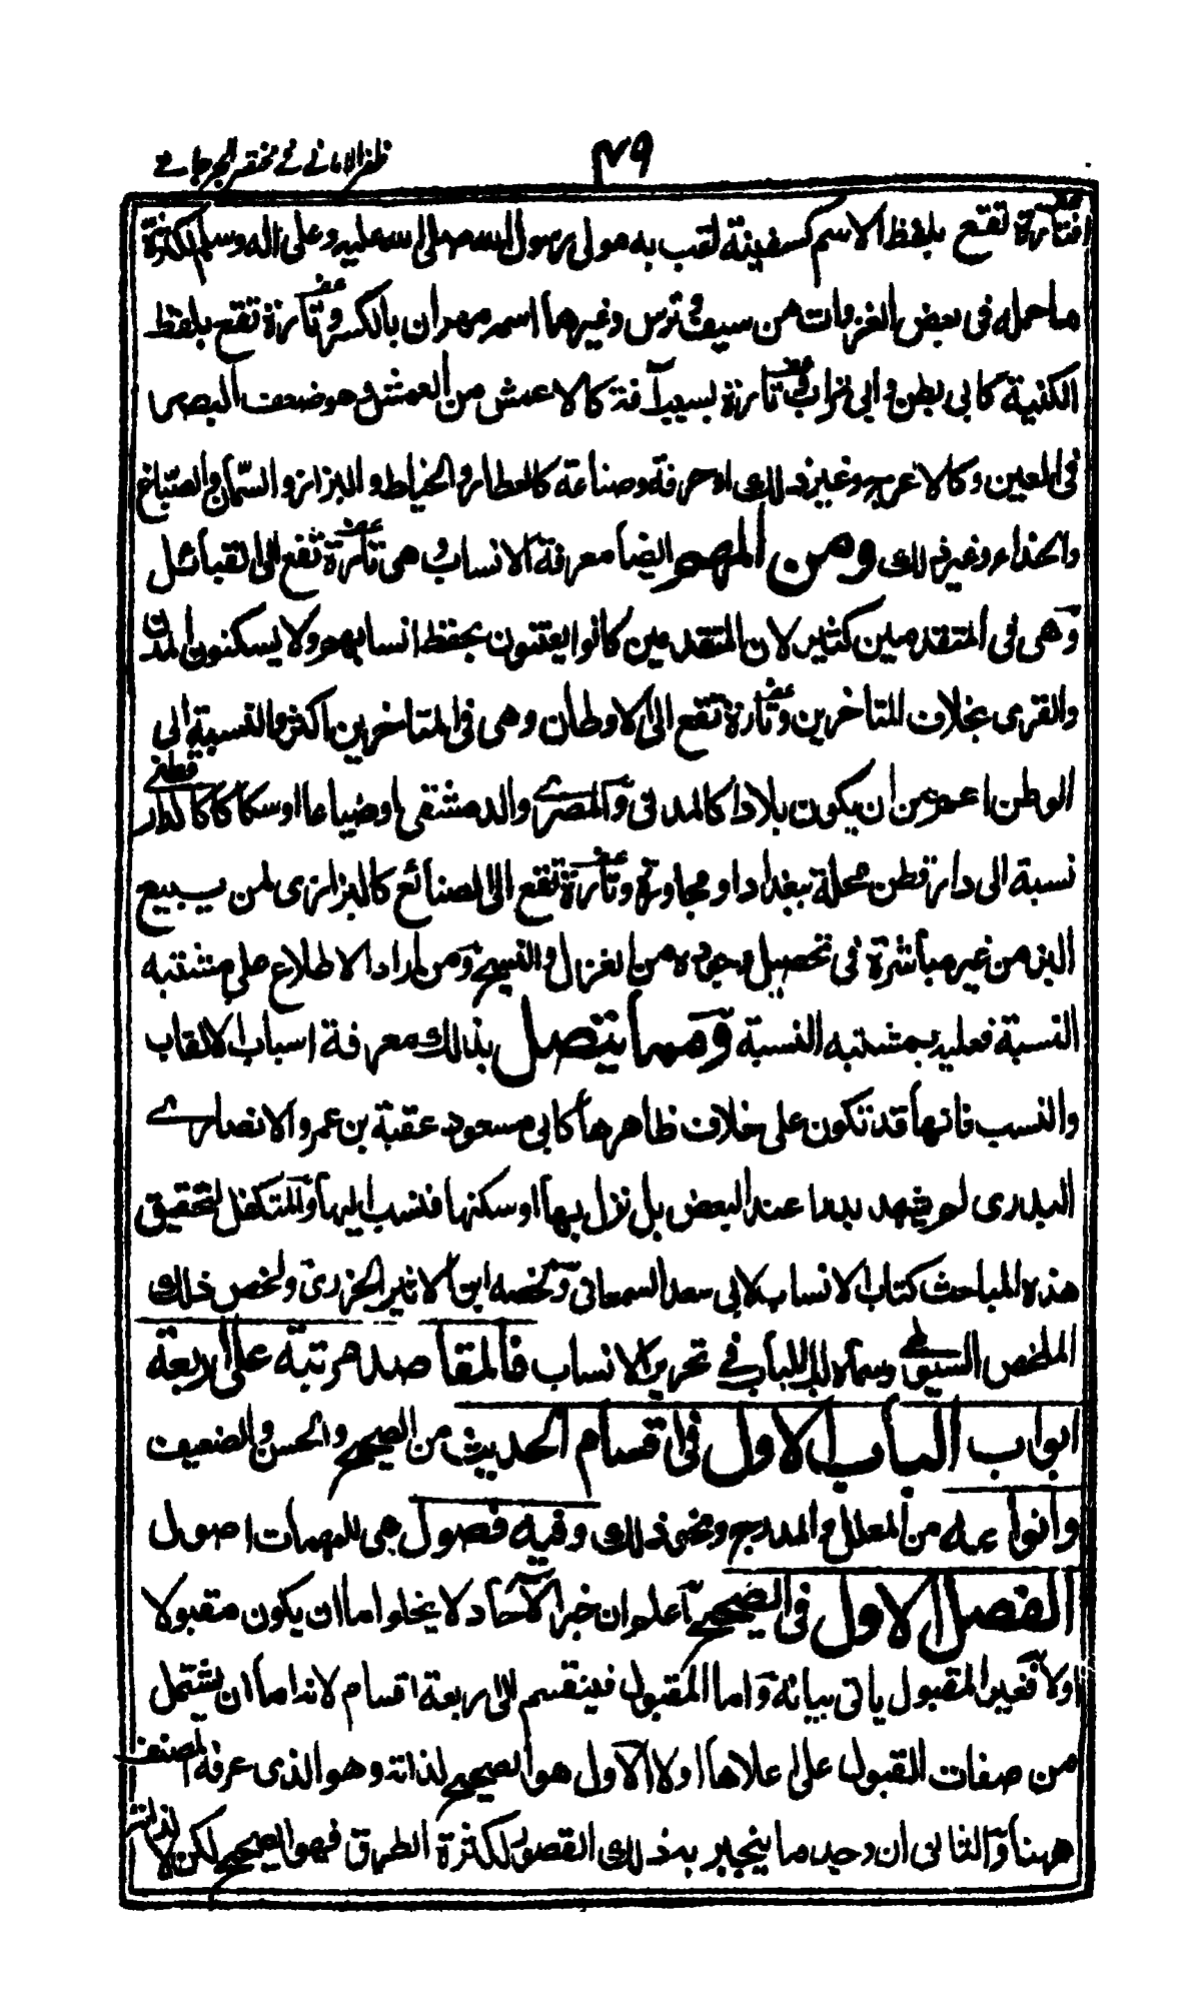 ظفر الامانى فى مختصر الجرجانى
٧٩
فتارة تقع بلفظ الاسم كسفينة لقب به مولى رسول الله صلى الله عليه وعلى اله وسلم لكثرة
ما حمله فى بعض الغزوات من سيف وترس وغيرهما اسمه مهران بالكسر وتارة تقع بلفظ
الكنية كابى بطن وابى تراب وتارة بسبب آفة كالاعمش من العمش هو ضعف البصر
فى العين وكالاعرج وغير ذلك او حرفة وصناعة كالعطار والخياط والبزاز والسمان والصباغ
والحذاء وغير ذلك ومن المهم ايضا معرفة الانساب وهى تارة تقع الى القبائل
وهى فى المتقدمين كثير لان المتقدمين كانوا يعتنون بحفظ انسابهم ولا يسكنون المدن
والقرى بخلاف المتاخرين وتارة تقع الى الاوطان وهى فى المتاخرين اكثر والنسبة الى
الوطن اعم من ان يكون بلادا كالمدنى والمصرى والدمشقى او ضياعا او سككا كالدار قطنى
نسبة الى دار قطن محلة ببغداد او مجاورة وتارة تقع الى الصنائع كالبزازى لمن يبيع
البز من غير مباشرة فى تحصيل وجوده من الغزل والنسج ومن اراد الاطلاع على مشتبه
النسبة فعليه بمشتبه النسبة ومما يتصل بذلك معرفة اسباب الالقاب
والنسب فانها قد تكون على خلاف ظاهرها كابى مسعود عقبة بن عمرو الانصارى
البدرى لم يشهد بدرا عند البعض بل نزل بها او سكنها فنسب اليها والمتكفل لتحقيق
هذه المباحث كتاب الانساب لابى سعد السمعانى ولخصه ابن الاثير الجزرى ولخص ذلك
الملخص السيوطى وسماه لب اللباب فى تحرير الانساب فالمقاصد مرتبة على اربعة
ابواب الباب الاول فى اقسام الحديث من الصحيح والحسن والضعيف
وانواعه من المعلل والمدرج ونحو ذلك وفيه فصول هى للمهمات اصول
الفصل الاول فى الصحيح اعلم ان خبر الآحاد لا يخلو اما ان يكون مقبولا
اولا فغير المقبول ياتى بيانه واما المقبول فينقسم الى اربعة اقسام لانه اما ان يشتمل
من صفات القبول على اعلاها اولا الاول هو الصحيح لذاته وهو الذى عرفه المصنف
ههنا والثانى ان وجد ما ينجبر به ذلك القصور لكثرة الطرق فهو الصحيح لكن لا لذاته